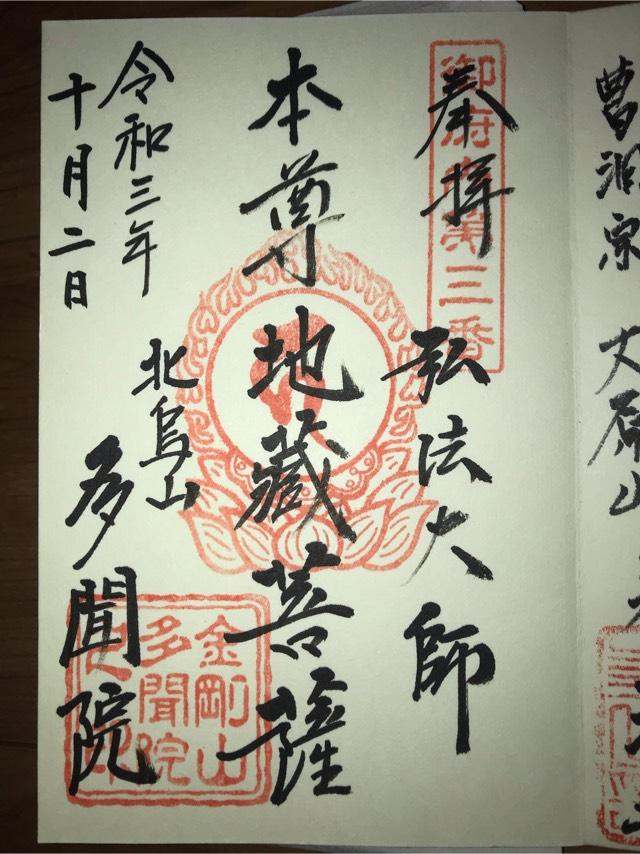 曹洞宗 大原山
奉拝
御府内第三番
弘法大師
本尊地蔵菩薩
令和三年
十月二日
北烏山
多聞院
金剛山
多聞院